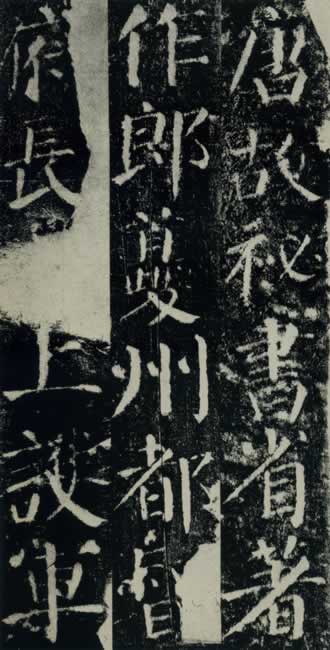 唐故秘書省著
作郎䕫州都督
府長 上護軍